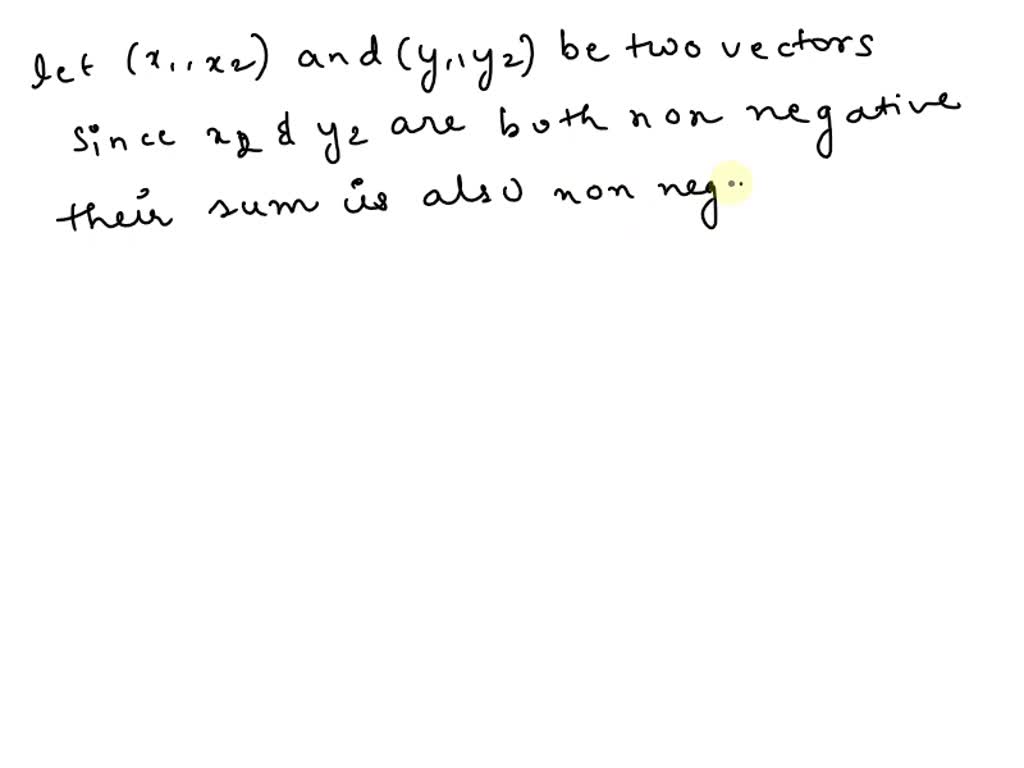 let (x1, x2) and (y1, y2) be two vectors
Since x2 & y2 are both non negative
their sum is also non neg..